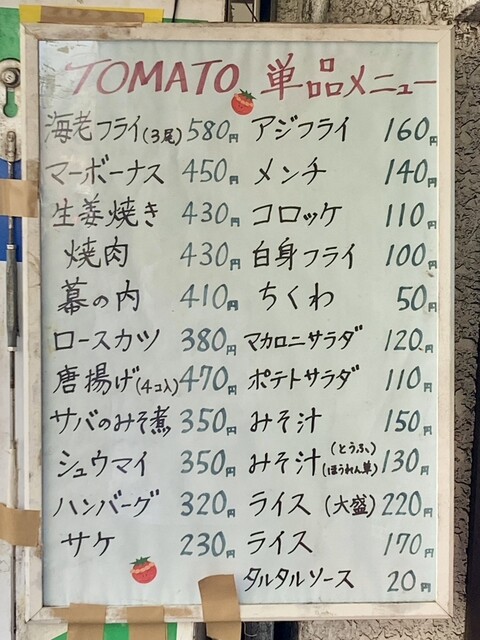 TOMATO 単品メニュー
海老フライ(3尾) 580円
マーボーナス 450円
生姜焼き 430円
焼肉 430円
幕の内 410円
ロースカツ 380円
唐揚げ(4コ入) 470円
サバのみそ煮 350円
シュウマイ 350円
ハンバーグ 320円
サケ 230円
アジフライ 160円
メンチ 140円
コロッケ 110円
白身フライ 100円
ちくわ 50円
マカロニサラダ 120円
ポテトサラダ 110円
みそ汁 150円
みそ汁(とうふ、ほうれん草) 130円
ライス(大盛) 220円
ライス 170円
タルタルソース 20円